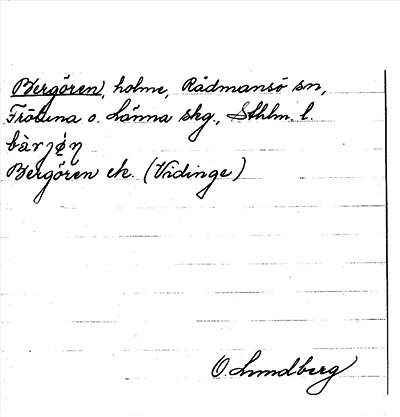 Bergören, holme, Rådmansö sn,
Frötuna o. Länna skg., Sthlm. l.
Bergören ek. (Vidinge)
O. Lundberg